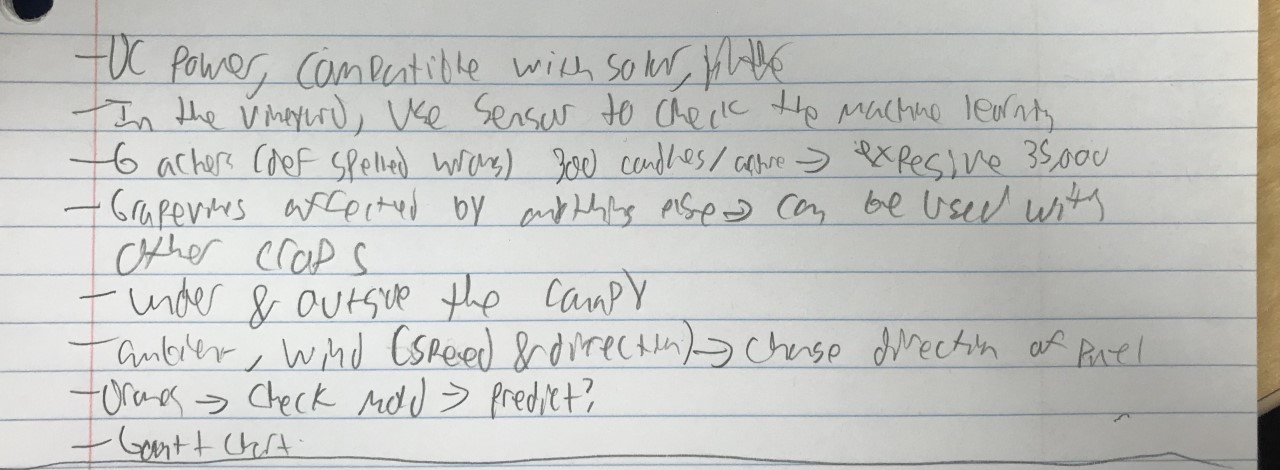 - DC Power, Compatible with solar,
- In the vineyard, use sensor to check the machine learning
- 6 achers (def spelled wrong) 300 candles/achre → expesive 35,000
- Grapevines affected by anything else → can be used with
other crops
- under & outside the canopy
- ambient, wind (speed & direction) → change direction of panel
- Drones → check mold → predict?
- Gantt chart